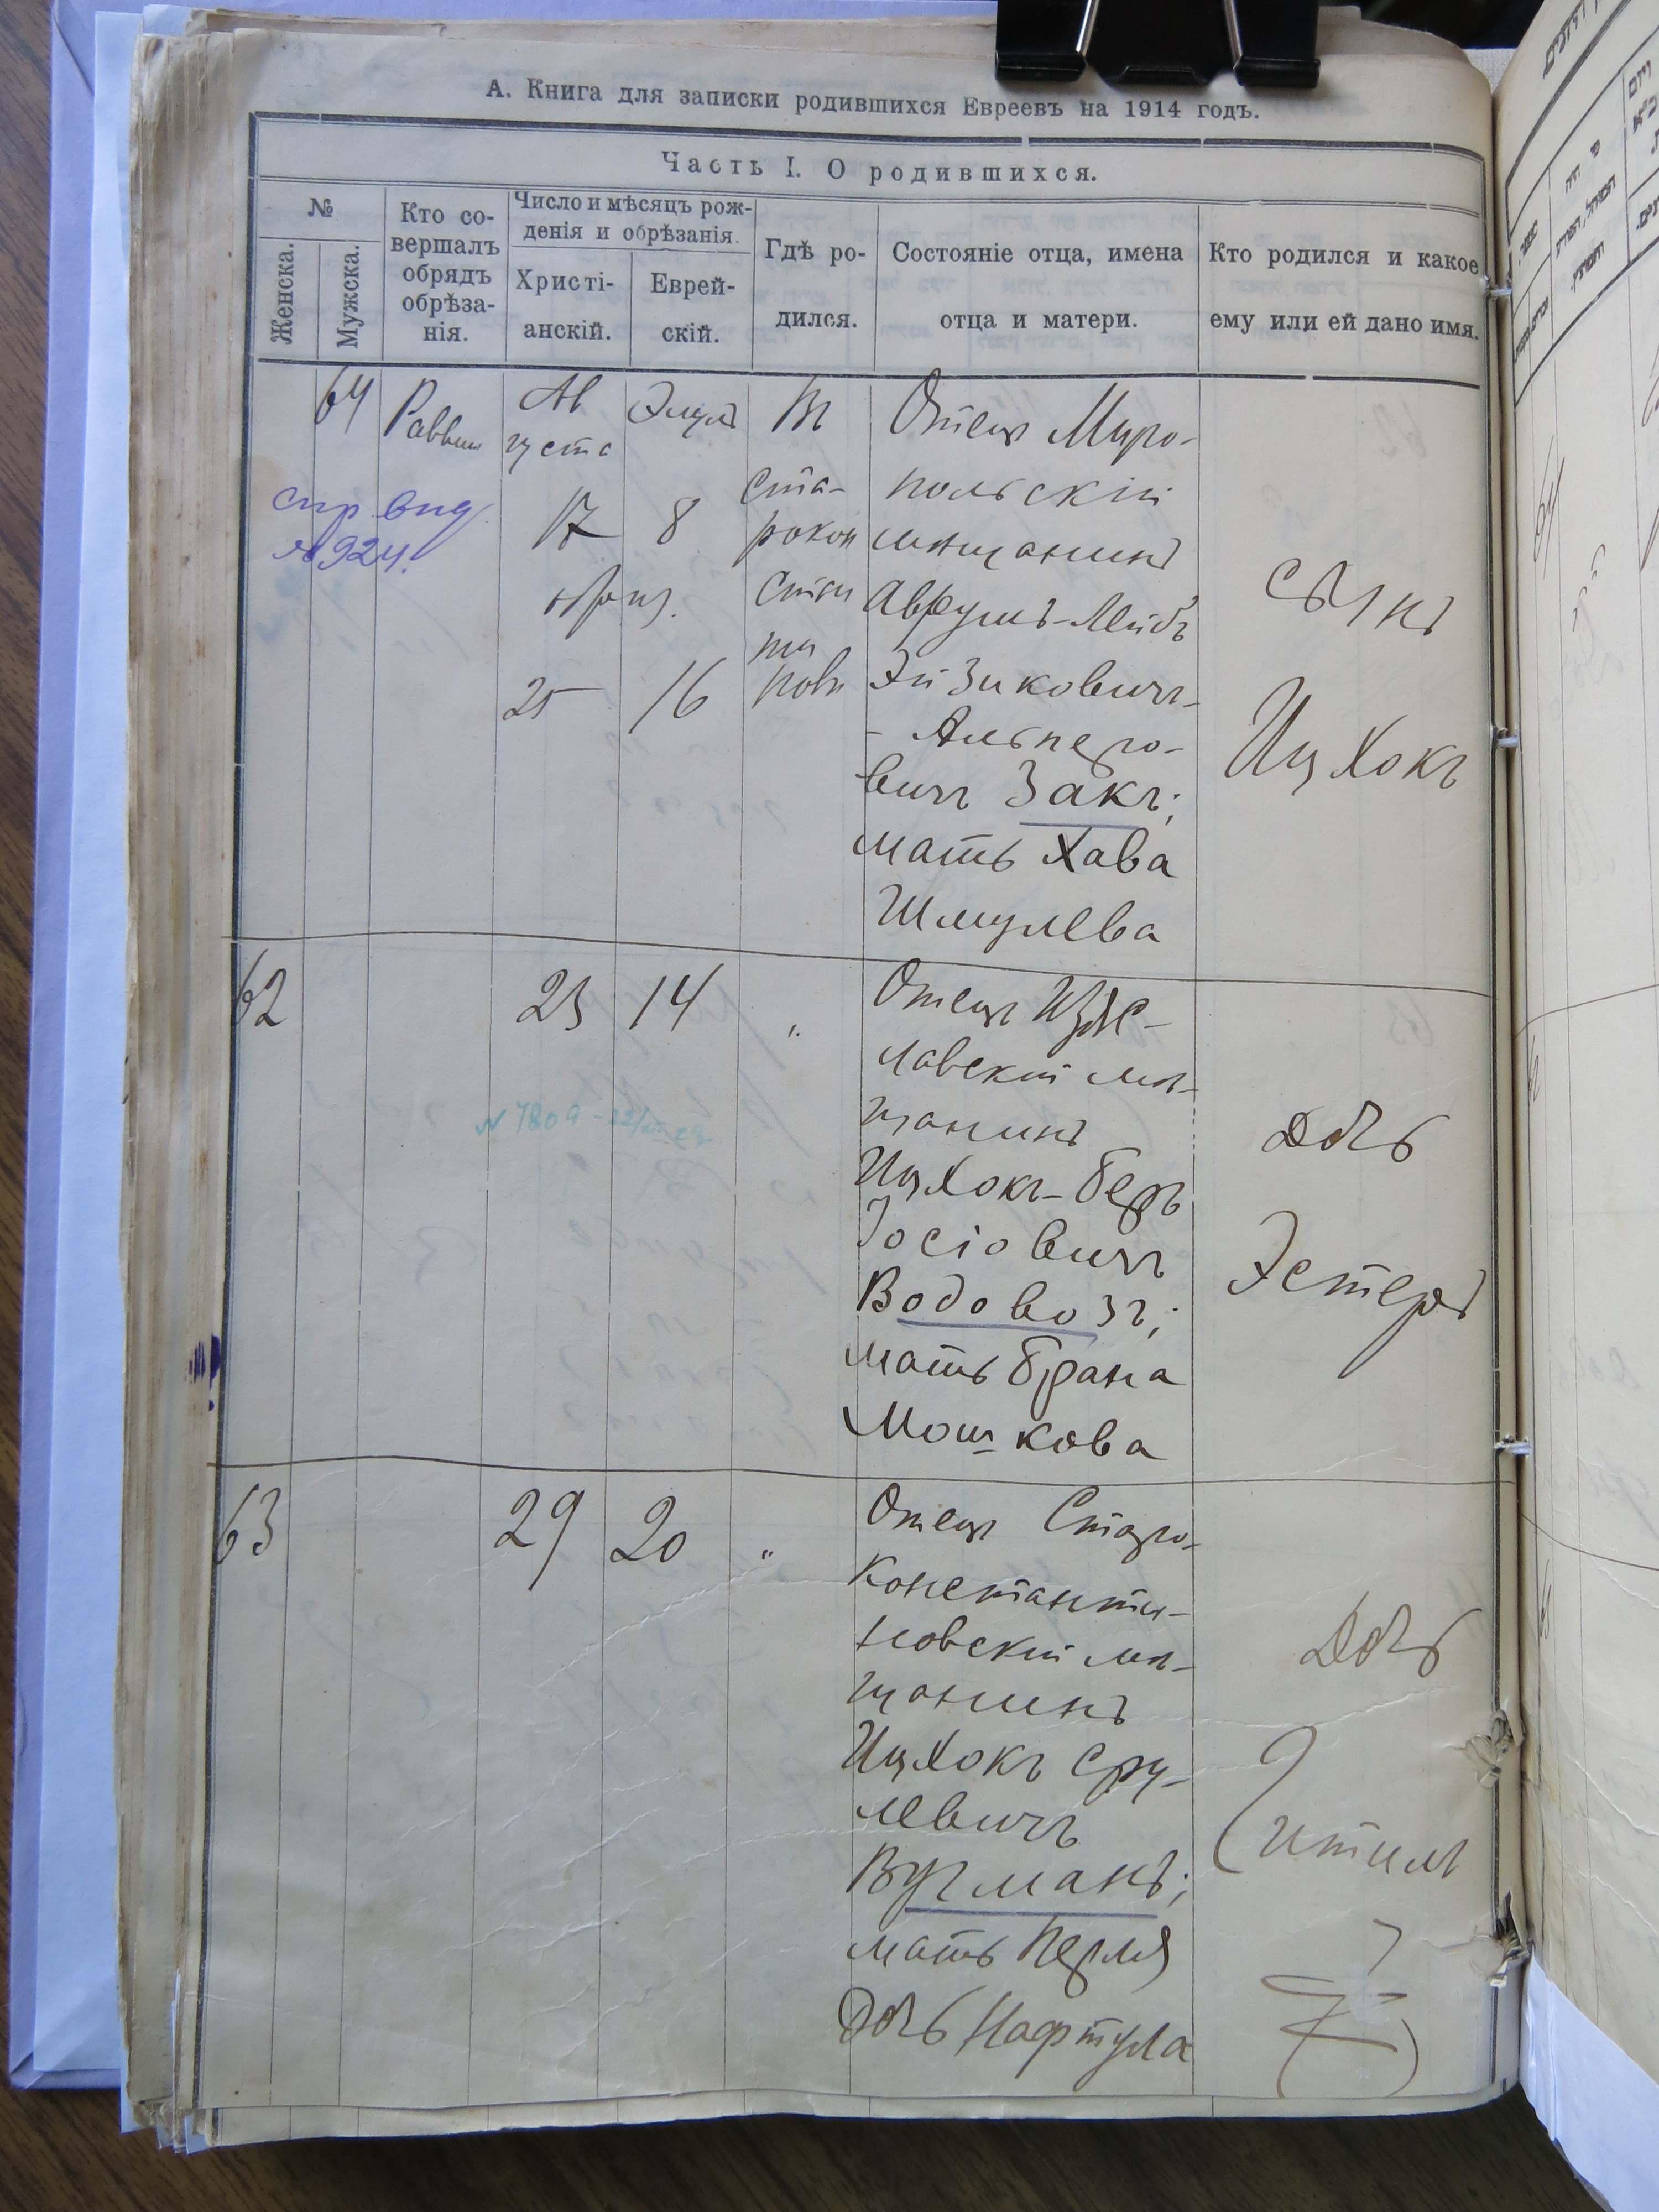 А. Книга для записки родившихся Евреевъ на 1914 годъ.
Часть I. О родившихся.
№
Женска.
Мужска.
Кто со-
вершалъ
обрядъ
обрѣза-
нія.
Число и мѣсяцъ рож-
денія и обрѣзанія.
Христі-
анскій.
Еврей-
скій.
Гдѣ ро-
дился.
Состояніе отца, имена
отца и матери.
Кто родился и какое
ему или ей дано имя.
64
Раввин
Ав
густа
17
обрѣз.
25
Элулъ
8
16
Ста-
рокон
стан
ти
новѣ
Отецъ Миро-
польскій
мѣщанинъ
Аврумъ-Лейбъ
Эйзиковичъ-
- Альперо-
вичъ Закъ;
мать Хава
Шмулева
сынъ
Ицхокъ
спр вид
№ 924.
62
23
14
"
Отецъ Изяс-
лавскій мѣ-
щанинъ
Ицхокъ-Беръ
Іосіовичъ
Водовозъ;
мать Брана
Мошкова
дочь
Эстеръ
N 7809
63
29
20
"
Отецъ Старо-
константи-
новскій мѣ-
щанинъ
Ицхокъ Сру-
левичъ
Вугманъ;
мать Перля
дочь Нафтула
дочь
Гитиль